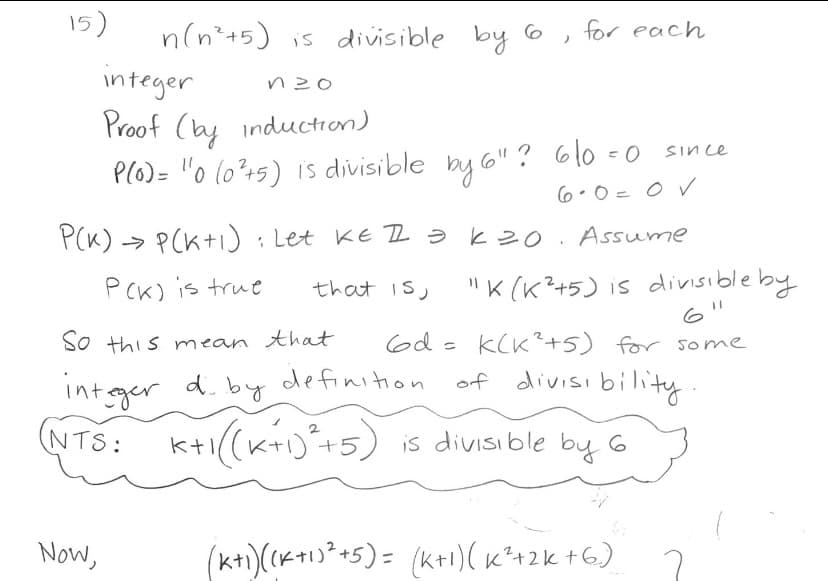 15)
n(n²+5) is divisible by 6, for each
integer n≥0
Proof (by induction)
P(0)= "0 (0²+5) is divisible by 6"? 6|0 = 0 since
6·0 = 0 ✓
P(K) → P(K+1) : Let K∈ ℤ ∋ k≥0. Assume
P(K) is true that is, "K(K²+5) is divisible by
6"
So this mean that 6d = K(K²+5) for some
integer d by definition of divisibility.
NTS: K+1((K+1)²+5) is divisible by 6
Now, (K+1)((K+1)²+5) = (K+1)(K²+2K+6)